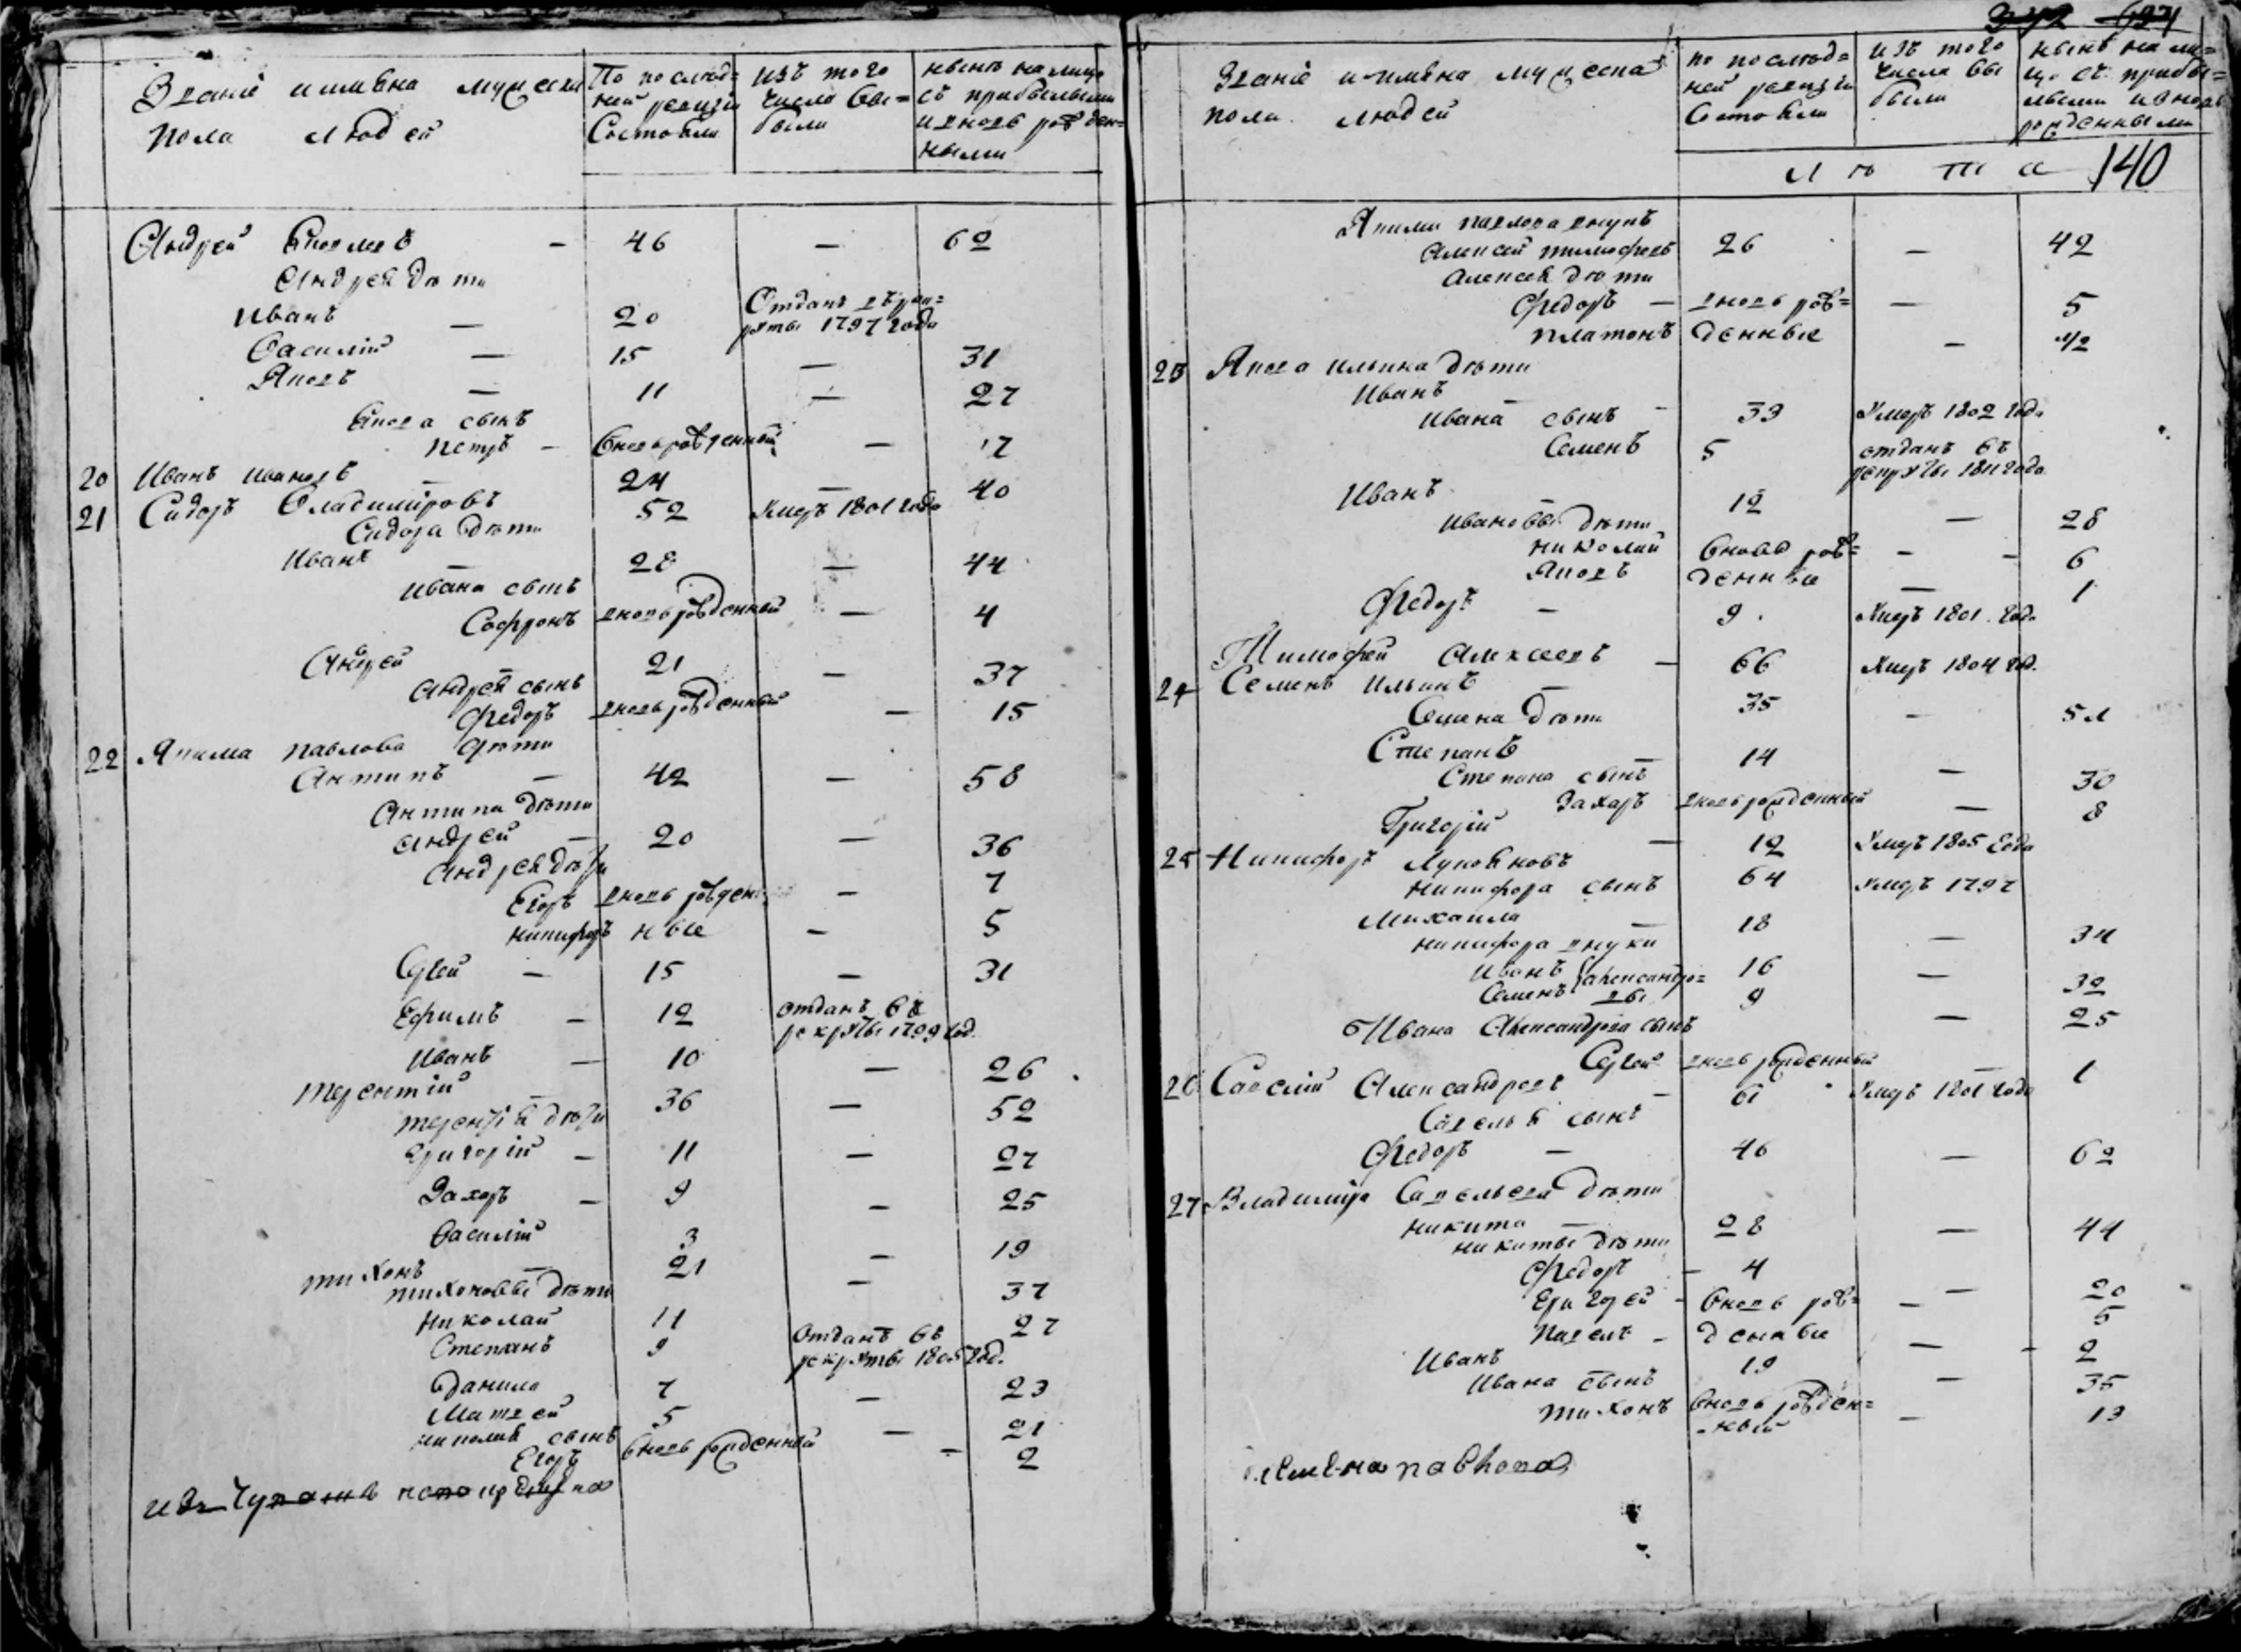 Званіе и имѣна мужеска
пола людей
По послѣд=
ней ревизіи
Состояли
изъ того
числа вы=
были
нынѣ на лицо
съ прибылыми
и вновь рожден=
ными
Андрей Яковлевъ — 46 — 62
Андрея дѣти
Иванъ — 20 Отданъ въ рек=
руты 1797 года
Василій — 15 — 31
Яковъ — 11 — 27
Якова сынъ
Петръ — вновь рожденный — 12
20 Иванъ Ивановъ — 24 — 40
21 Сидоръ Владимировъ 52 Умеръ 1801 года
Сидора дѣти
Иванъ — 28 — 44
Ивана сынъ
Софронъ вновь рожденный — 4
Андрей — 21 — 37
Андрея сынъ
Федоръ вновь рожденный — 15
22 Якима Павлова дѣти
Антипъ — 42 — 58
Антипа дѣти
Андрей — 20 — 36
Андрея дѣти
Егоръ вновь рожден= — 7
Никифоръ ные — 5
Сергей — 15 — 31
Ефимъ — 12 отданъ въ
рекруты 1799 год.
Иванъ — 10 — 26
Терентій — 36 — 52
Терентія дѣти
Григорій — 11 — 27
Захаръ — 9 — 25
Василій 3 — 19
Тихонъ — 21 — 37
Тихоновы дѣти
Николай 11 27
Степанъ 9 Отданъ въ
рекруты 1805 год.
Данила 7 — 23
Матвей 5 — 21
Николая сынъ
Егоръ вновь рожденный — 2
322 697
Званіе и имѣна мужеска
пола людей
по послѣд=
ней ревизіи
Состояли
изъ того
числа вы
были
нынѣ на ли=
цо съ прибы=
лыми и вновь
рожденными
Л ѣ т а 140
Якима Павлова внукъ
Алексей Тимофеевъ 26 — 42
Алексея дѣти
Федоръ — вновь рож= — 5
Платонъ денные — 1/2
23 Якова Ильина дѣти
Иванъ — 33 Умеръ 1802 года
Ивана сынъ —
Семенъ 5 отданъ въ
рекруты 1811 года
Иванъ — 12 — 28
Ивановы дѣти
Николай вновь рож= — 6
Яковъ денные — 1
Федоръ — 9 Умеръ 1801 года
Тимофей Алексеевъ — 66 Умеръ 1804 год.
24 Семенъ Ильинъ — 35 — 51
Семена дѣти
Степанъ — 14 — 30
Степана сынъ
Захаръ вновь рожденный — 8
Григорій — 12 Умеръ 1805 года
25 Никифоръ Лукояновъ 64 умеръ 1797
Никифора сынъ
Михаила — 18 — 34
Никифора внуки
Иванъ Александро= 16 — 32
Семенъ вы 9 — 25
Ивана Александрова сынъ
Сергей вновь рожденный — 1
26 Савелій Александровъ — 61 Умеръ 1801 года
Савелья сынъ
Федоръ — 46 — 62
27 Владимира Савельева дѣти
Никита — 28 — 44
Никиты дѣти
Федоръ — 4 — 20
Григорей — вновь рож= — 5
Павелъ — денные — 2
Иванъ 19 — 35
Ивана сынъ
Тихонъ вновь рожден=
ный — 13